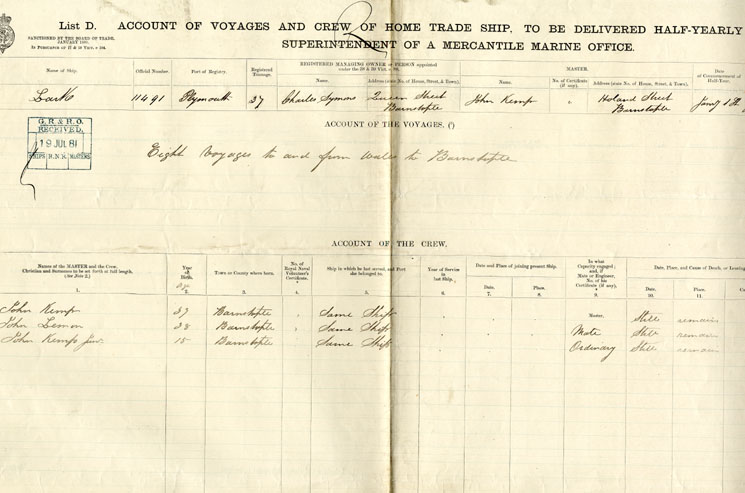 List D. ACCOUNT OF VOYAGES AND CREW OF HOME TRADE SHIP, TO BE DELIVERED HALF-YEARLY
SANCTIONED BY THE BOARD OF TRADE,
JANUARY 1881.
SUPERINTENDENT OF A MERCANTILE MARINE OFFICE.
REGISTERED MANAGING OWNER or PERSON appointed
MASTER.
Name of Ship. Official Number. Port of Registry. Registered Tonnage. Name. Address (state No. of House, Street, & Town). Name. No. of Certificate (if any). Address (state No. of House, Street, & Town). Date of Commencement of Half-Year.
Lark 11491 Plymouth 37 Charles Symons Queen Street Barnstaple John Kemp Holand Street Barnstaple Jany 1st
G.R.&R.O.
RECEIVED
19 JUL 81
SHIPS R.N.R. MASTERS
ACCOUNT OF THE VOYAGES.
Eight Voyages to and from Wales to Barnstaple
ACCOUNT OF THE CREW.
Names of the MASTER and the Crew. Christian and Surnames to be set forth at full length. (See Note 2.) Year of Birth. Town or County where born. No. of Royal Naval Volunteer's Certificate. Ship in which he last served, and Port she belonged to. Year of Service in last Ship. Date and Place of joining present Ship. In what Capacity engaged; and, if Mate or Engineer, No. of his Certificate (if any). Date, Place, and Cause of Death, or Leaving
Date. Place. Date. Place.
1. 2. 3. 4. 5. 6. 7. 8. 9. 10. 11.
John Kemp 37 Barnstaple Same Ship Master. Still remains
John Lemon 38 Barnstaple Same Ship Mate Still remains
John Kemp Junr 15 Barnstaple Same Ship Ordinary Still remain